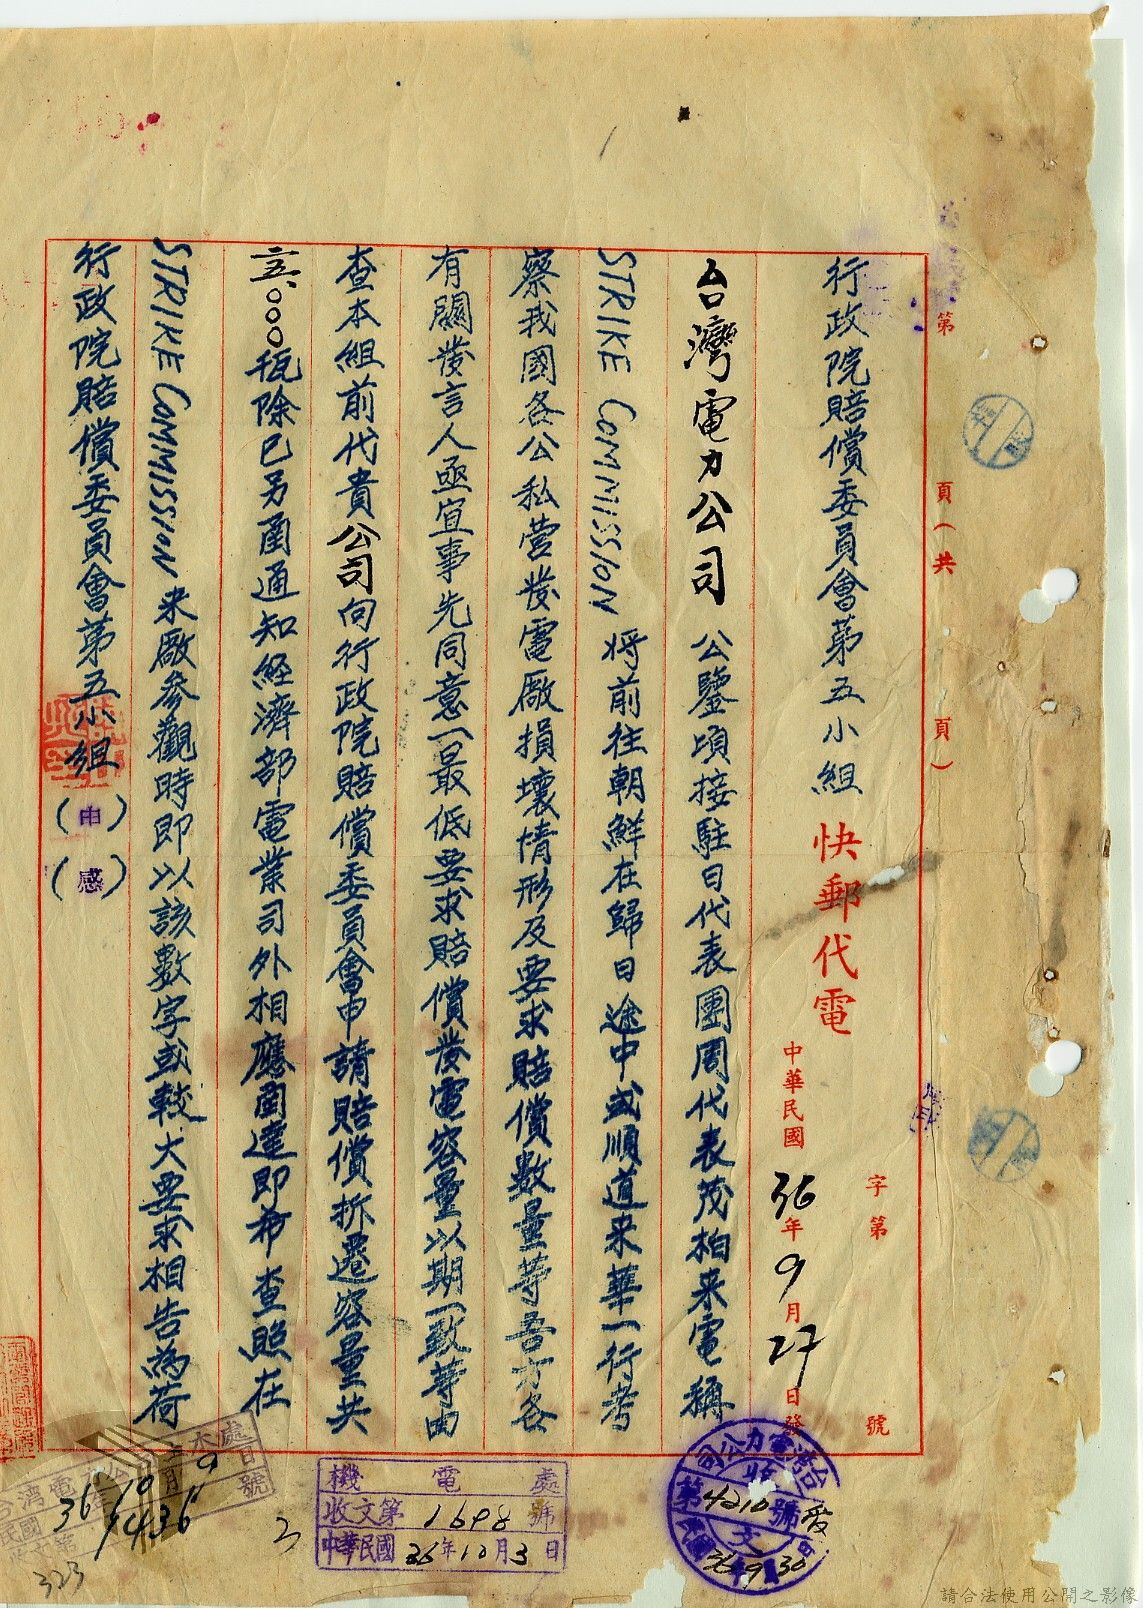 第 頁(共 頁)
行政院賠償委員會第五小組 快郵代電
字第 號
中華民國36年9月27日發
台灣電力公司 公鑒頃接駐日代表團周代表茂柏来電稱
STRIKE COMMISSION 将前往朝鮮在歸日途中或順道来華一行考
察我國各公私營發電廠損壞情形及要求賠償數量等吾方各
有關發言人亟宜事先同意一最低要求賠償發電容量以期一致等由
查本組前代貴公司向行政院賠償委員會申請賠償拆遷容量共
瓩除已另函通知経濟部電業司外相應函達即希 查照在
STRIKE COMMISSION 来廠參觀時即以該數字或較大要求相告為荷
行政院賠償委員會第五小組(申)(感)
台灣電力公司
收文
第4210號
36 9 30
機電處
收文第1698號
中華民國36年10月3日
323
請合法使用公開之影像